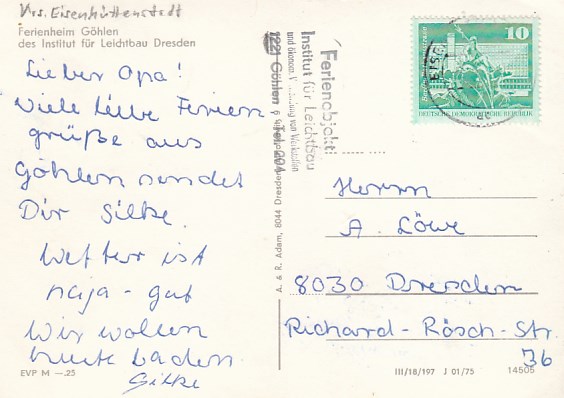 Krs. Eisenhüttenstadt
Ferienheim Göhlen
des Institut für Leichtbau Dresden
Lieber Opa!
Viele liebe Ferien
grüße aus
Göhlen sendet
Dir Silke.
Wetter ist
naja - gut
Wir wollen
heute baden
Silke
EVP M —.25
A. & R. Adam, 8044 Dresden
Ferienobjekt
Institut für Leichtbau
und ökonom.
von Werkstoffen
1221 Göhlen
Tel. 204
10
DEUTSCHE DEMOKRATISCHE REPUBLIK
Herrn
A. Löwe
8030 Dresden
Richard-Rösch-Str.
36
III/18/197 J 01/75
14505